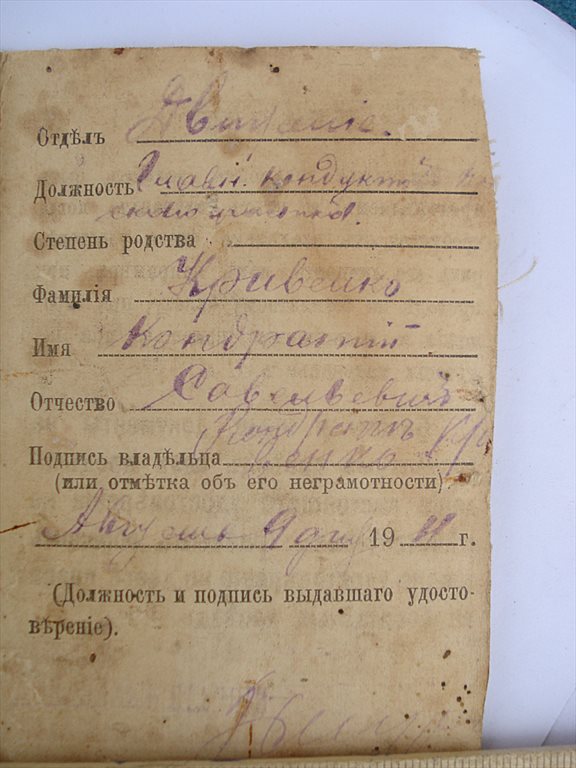 Отдѣлъ Движеніе.
Должность Главн. кондукт
участка.
Степень родства
Фамилія Кривенко
Имя Кондратій
Отчество Савельевичъ
Кондратъ Кри
Подпись владѣльца венко
(или отмѣтка объ его неграмотности).
Августъ 9 дня 19 11 г.
(Должность и подпись выдавшаго удосто-
вѣреніе).